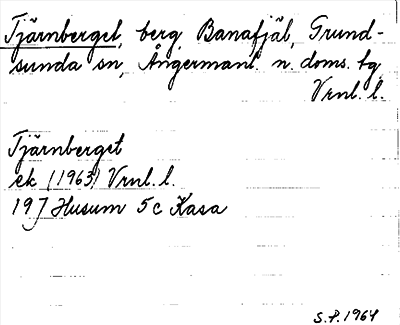 Tjärnberget, berg, Banafjäl, Grund-
sunda sn, Ångermanl. n. doms. tg
Vrnl. l.
Tjärnberget
ek (1963) Vrnl. l.
19J Husum 5c Kasa
S.P. 1964